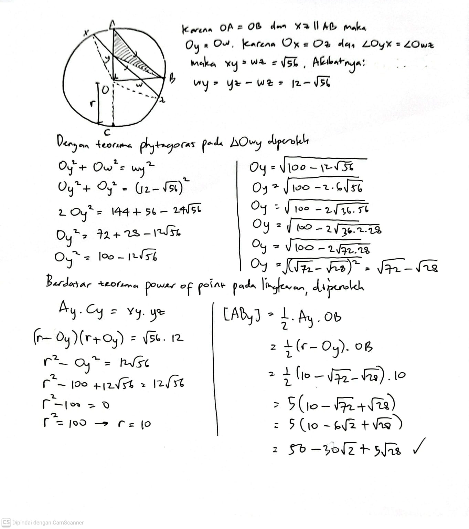 A
X
y
O
w
B
r
z
C
Karena OA = OB dan XZ // AB maka
Oy = Ow. Karena Ox = Oz dan ∠Oyx = ∠Owz
maka xy = wz = √56, Akibatnya:
wy = yz - wz = 12 - √56
Dengan teorema phytagoras pada ΔOwy diperoleh
Oy² + Ow² = wy²
Oy² + Oy² = (12 - √56)²
2 Oy² = 144 + 56 - 24√56
Oy² = 72 + 28 - 12√56
Oy² = 100 - 12√56
Oy = √100 - 12√56
Oy = √100 - 2.6√56
Oy = √100 - 2√36.56
Oy = √100 - 2√36.2.28
Oy = √100 - 2√72.28
Oy = √(√72 - √28)² = √72 - √28
Berdasar teorema power of point pada lingkaran, diperoleh
Ay . Cy = xy . yz
(r - Oy)(r + Oy) = √56 . 12
r² - Oy² = 12√56
r² - 100 + 12√56 = 12√56
r² - 100 = 0
r² = 100 → r = 10
[ABy] = 1/2 . Ay . OB
= 1/2 (r - Oy) . OB
= 1/2 (10 - √72 - √28) . 10
= 5 (10 - √72 + √28)
= 5 (10 - 6√2 + √28)
= 50 - 30√2 + 5√28 ✓
CS Dipindai dengan CamScanner